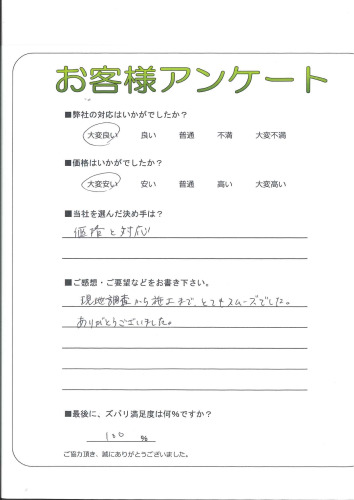 お客様アンケート
■弊社の対応はいかがでしたか？
大変良い 良い 普通 不満 大変不満
■価格はいかがでしたか？
大変安い 安い 普通 高い 大変高い
■当社を選んだ決め手は？
価格と対応
■ご感想・ご要望などをお書き下さい。
現地調査から施工まで、とてもスムーズでした。
ありがとうございました。
■最後に、ズバリ満足度は何％ですか？
100 %
ご協力頂き、誠にありがとうございました。